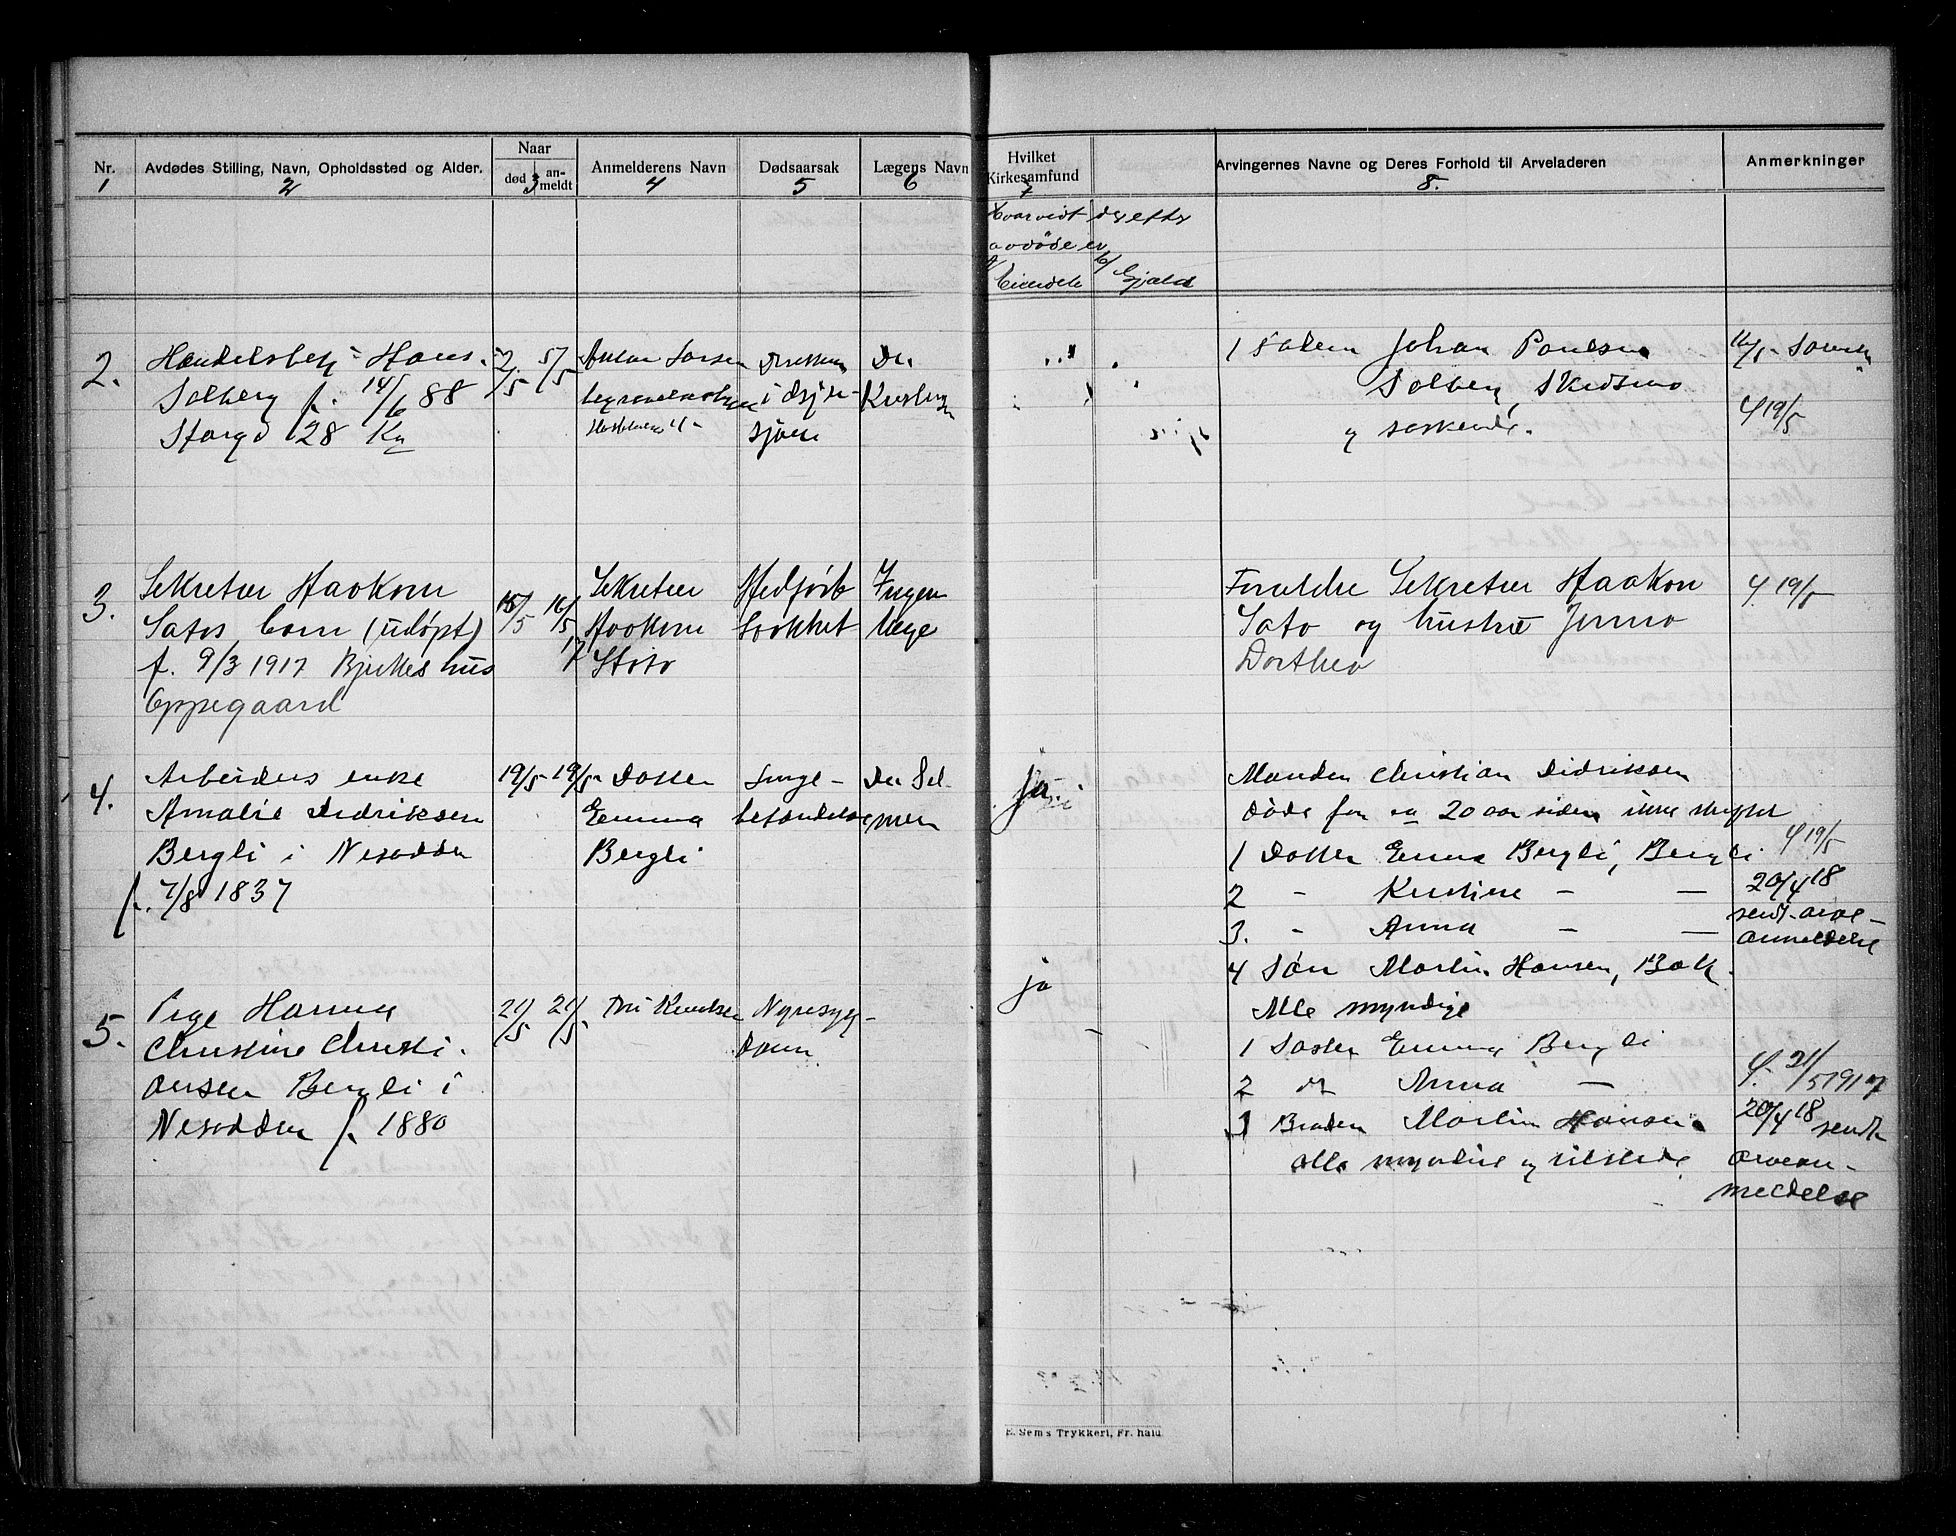 Nr. Avdødes Stilling, Navn, Opholdssted og Alder. Naar død anmeldt Anmelderens Navn Dødsaarsak Lægens Navn Hvilket Kirkesamfund Arvingernes Navne og Deres Forhold til Arveladeren Anmerkninger
1 2 3 4 5 6 7 8.
Hvorvidt der efter
avdøde er
a/ Eiendele b/ Gjæld
2.
Handelsbetj Hans
Solberg f. 14/6 88
Storgd 28 Ka
2/5 5/5
Anton Larsen
Druknet
i Gsjø-
sjøen
Dr.
1 Faderen Johan Paulsen
Solberg, Skedsmo
og søskende.
4 19/5
3.
Sekretær Haakon
Satos barn (udøpt)
f. 9/3 1917 Bjerkes hus
Oppegaard
15/5 16/5
17
Sekretær
Haakon
Sato
Medfødt
Svakhet
Ingen
læge
Forældre Sekretær Haakon
Sato og hustru Jenna
Dorthea
4. 19/5
4.
Arbeiders enke
Amalie Didriksen
Bergli i Nesodden
f. 7/8 1837
19/5 19/5
Datter
Emma
Bergli
Lunge-
betændelse
Dr. Sel
mer
ja
Manden Christian Didriksen
døde for ca 20 aar siden ikke skiftet
1 Datter Emma Bergli, Bergli
2 - Kristine - -
3. - Anna - -
4 Søn Martin Hansen, Bak
Alle myndige
4 19/5
20/4 18
sendt arve-
anmeldelse
5.
Pige Hanna
Christine Christi-
ansen Bergli i
Nesodden f. 1880
21/5 21/5
Dri Knudsen
Nyresyg-
dom
ja
1 Søster Emma Bergli
2 do Anna -
3 Broder Martin Hansen
alle myndige og tilstede
4. 21/5 1917
20/4 18 sendt
arvean-
meldelse
E. Sems Trykkeri, Fr. hald